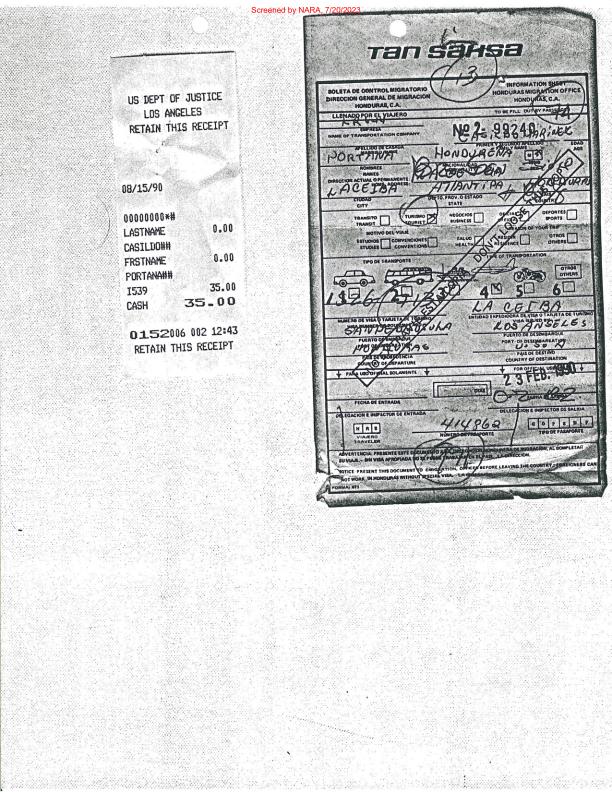 Screened by NARA, 7/20/2023
US DEPT OF JUSTICE
LOS ANGELES
RETAIN THIS RECEIPT
08/15/90
00000000*#
LASTNAME 0.00
CASILDO##
FRSTNAME 0.00
PORTANA##
I539 35.00
CASH 35.00
0152006 002 12:43
RETAIN THIS RECEIPT
Tan sahsa
13
BOLETA DE CONTROL MIGRATORIO
DIRECCION GENERAL DE MIGRACION
HONDURAS, C.A.
INFORMATION SHEET
HONDURAS MIGRATION OFFICE
HONDURAS, C.A.
LLENADO POR EL VIAJERO
TO BE FILL OUT BY PASSENGER
EMPRESA
NAME OF TRANSPORTATION COMPANY
APELLIDO DE CASADA
EDAD
AGE
PORTANA HONDUREÑA
NOMBRES
NAMES
DIRECCION ACTUAL O PERMANENTE
LA CEIBA ATLANTIDA HONDURAS
CIUDAD
CITY
DEPTO. PROV. O ESTADO
STATE
COUNTRY
TRANSITO
TRANSIT
TURISMO
TOURIST
NEGOCIOS
BUSINESS
DEPORTES
SPORTS
MOTIVO DEL VIAJE
REASON OF YOUR TRIP
ESTUDIOS
STUDIES
CONVENCIONES
CONVENTIONS
SALUD
HEALTH
RESIDENCE
OTROS
OTHERS
TIPO DE TRANSPORTE
OF TRANSPORTATION
DON'T LOSE
OTROS
OTHERS
4 5 6
LA CEIBA
NUMERO DE VISA O TARJETA DE
ENTIDAD EXPEDIDORA DE VISA O TARJETA DE TURISMO
SAN PEDRO SULA LOS ANGELES
PUERTO DE DESEMBARQUE
PORT OF DESEMBARCATION
HONDURAS U.S.A
PAIS DE DESTINO
COUNTRY OF DESTINATION
COUNTRY OF DEPARTURE
PARA USO OFICIAL SOLAMENTE
FOR OFFICIAL USE
23 FEB. 1990
FECHA DE ENTRADA
DELEGACION E INSPECTOR DE ENTRADA
DELEGACION E INSPECTOR DE SALIDA
N R S
VIAJERO
TRAVELER
414862
NUMERO DE PASAPORTE
TIPO DE PASAPORTE
ADVERTENCIA: PRESENTE ESTE DOCUMENTO
AL COMPLETAR
SU VIAJE.
NOTICE PRESENT THIS DOCUMENT TO EMIGRATION OFFICER BEFORE LEAVING THE COUNTRY. FOREIGNERS CAN
NOT WORK IN HONDURAS WITHOUT SPECIAL VISA.